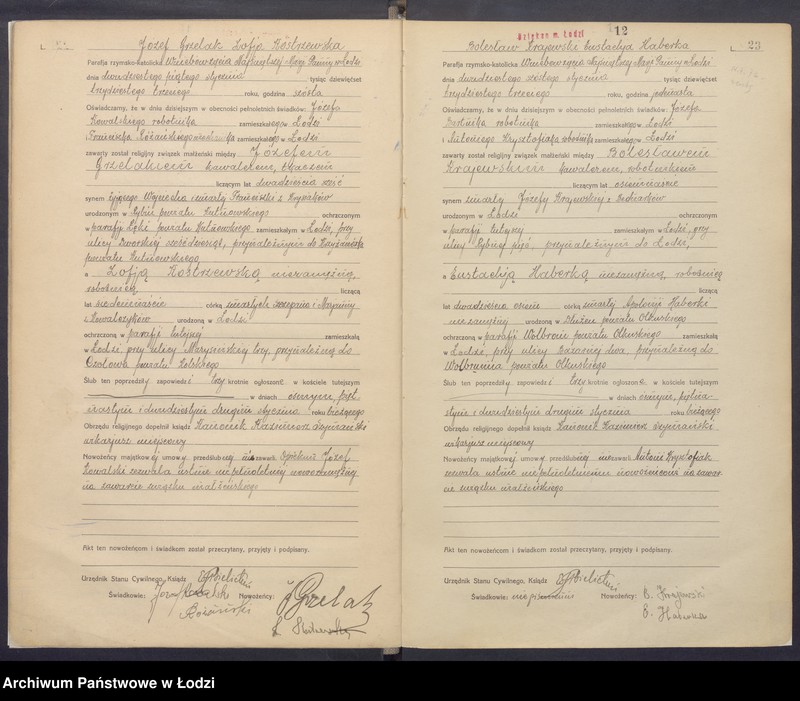 Józef Grzelak Zofja Kostrzewska
Parafja rzymsko-katolicka Wniebowzięcia Najświętszej Marji Panny w Łodzi
dnia dwudziestego piątego stycznia tysiąc dziewięćset
trzydziestego trzeciego roku, godzina szósta
Oświadczamy, że w dniu dzisiejszym w obecności pełnoletnich świadków: Józefa
Kowalskiego robotnika zamieszkałego w Łodzi
i Franciszka zamieszkałego w Łodzi
zawarty został religijny związek małżeński między Józefem
Grzelakiem kawalerem,
liczącym lat dwadzieścia sześć
synem żyjącego Wojciecha zmarłej Franciszki z
urodzonym w powiatu Kutnowskiego ochrzczonym
w parafji powiatu Kutnowskiego, zamieszkałym w Łodzi, przy
ulicy Dworskiej sześćdziesiąt, przynależnym do
powiatu Kutnowskiego
a Zofją Kostrzewską niezamężną,
robotnicą liczącą
lat siedemnaście córką zmarłych Szczepana i Marjanny
z Kowalczyków urodzoną w Łodzi
ochrzczoną w parafji tutejszej zamieszkałą
w Łodzi, przy ulicy Marysińskiej trzy, przynależną do
powiatu Kolskiego
Ślub ten poprzedziły zapowiedzi trzy krotnie ogłoszone w kościele tutejszym
w dniach ósmym, pięt
nastym i dwudziestym drugim stycznia roku bieżącego
Obrzędu religijnego dopełnił ksiądz Kanonik Kazimierz Szymański
wikarjusz miejscowy
Nowożeńcy majątkowej umowy przedślubnej nie zawarli. Opiekun Józef
Kowalski zezwala ustnie niepełnoletniej nowozamężnej
na zawarcie związku małżeńskiego
Akt ten nowożeńcom i świadkom został przeczytany, przyjęty i podpisany.
Urzędnik Stanu Cywilnego, Ksiądz
Świadkowie: Józef Kowalski Nowożeńcy: J Grzelak
Archiwum m. Łodzi
12
23
Bolesław Krajewski Eustachja Haberka
Parafja rzymsko-katolicka Wniebowzięcia Najświętszej Marji Panny w Łodzi
dnia dwudziestego szóstego stycznia tysiąc dziewięćset
trzydziestego trzeciego roku, godzina
Oświadczamy, że w dniu dzisiejszym w obecności pełnoletnich świadków: Józefa
robotnika zamieszkałego w Łodzi
i Antoniego Krysztofiaka robotnika zamieszkałego w Łodzi
zawarty został religijny związek małżeński między Bolesławem
Krajewskim kawalerem, robotnikiem
liczącym lat osiemnaście
synem zmarłej Józefy Krajewskiej
urodzonym w Łodzi ochrzczonym
w parafji tutejszej zamieszkałym w Łodzi, przy
ulicy Rybnej pięć, przynależnym do Łodzi,
a Eustachją Haberką niezamężną, robotnicą
liczącą
lat dwadzieścia osiem córką zmarłej Apolonji Haberki
niezamężnej urodzoną w powiatu Olkuskiego
ochrzczoną w parafji Wolbrom powiatu Olkuskiego zamieszkałą
w Łodzi, przy ulicy dwa przynależną do
Wolbromia powiatu Olkuskiego
Ślub ten poprzedziły zapowiedzi trzy krotnie ogłoszone w kościele tutejszym
w dniach ósmym, piętna
stym i dwudziestym drugim stycznia roku bieżącego
Obrzędu religijnego dopełnił ksiądz Kanonik Kazimierz Szymański
wikarjusz miejscowy
Nowożeńcy majątkowej umowy przedślubnej nie zawarli. Antoni Krysztofiak
zezwala ustnie niepełnoletniemu nowożeńcowi na zawar
cie związku małżeńskiego
Akt ten nowożeńcom i świadkom został przeczytany, przyjęty i podpisany.
Urzędnik Stanu Cywilnego, Ksiądz
Świadkowie: niepiśmienni Nowożeńcy: B. Krajewski
E. Haberka
Archiwum Państwowe w Łodzi